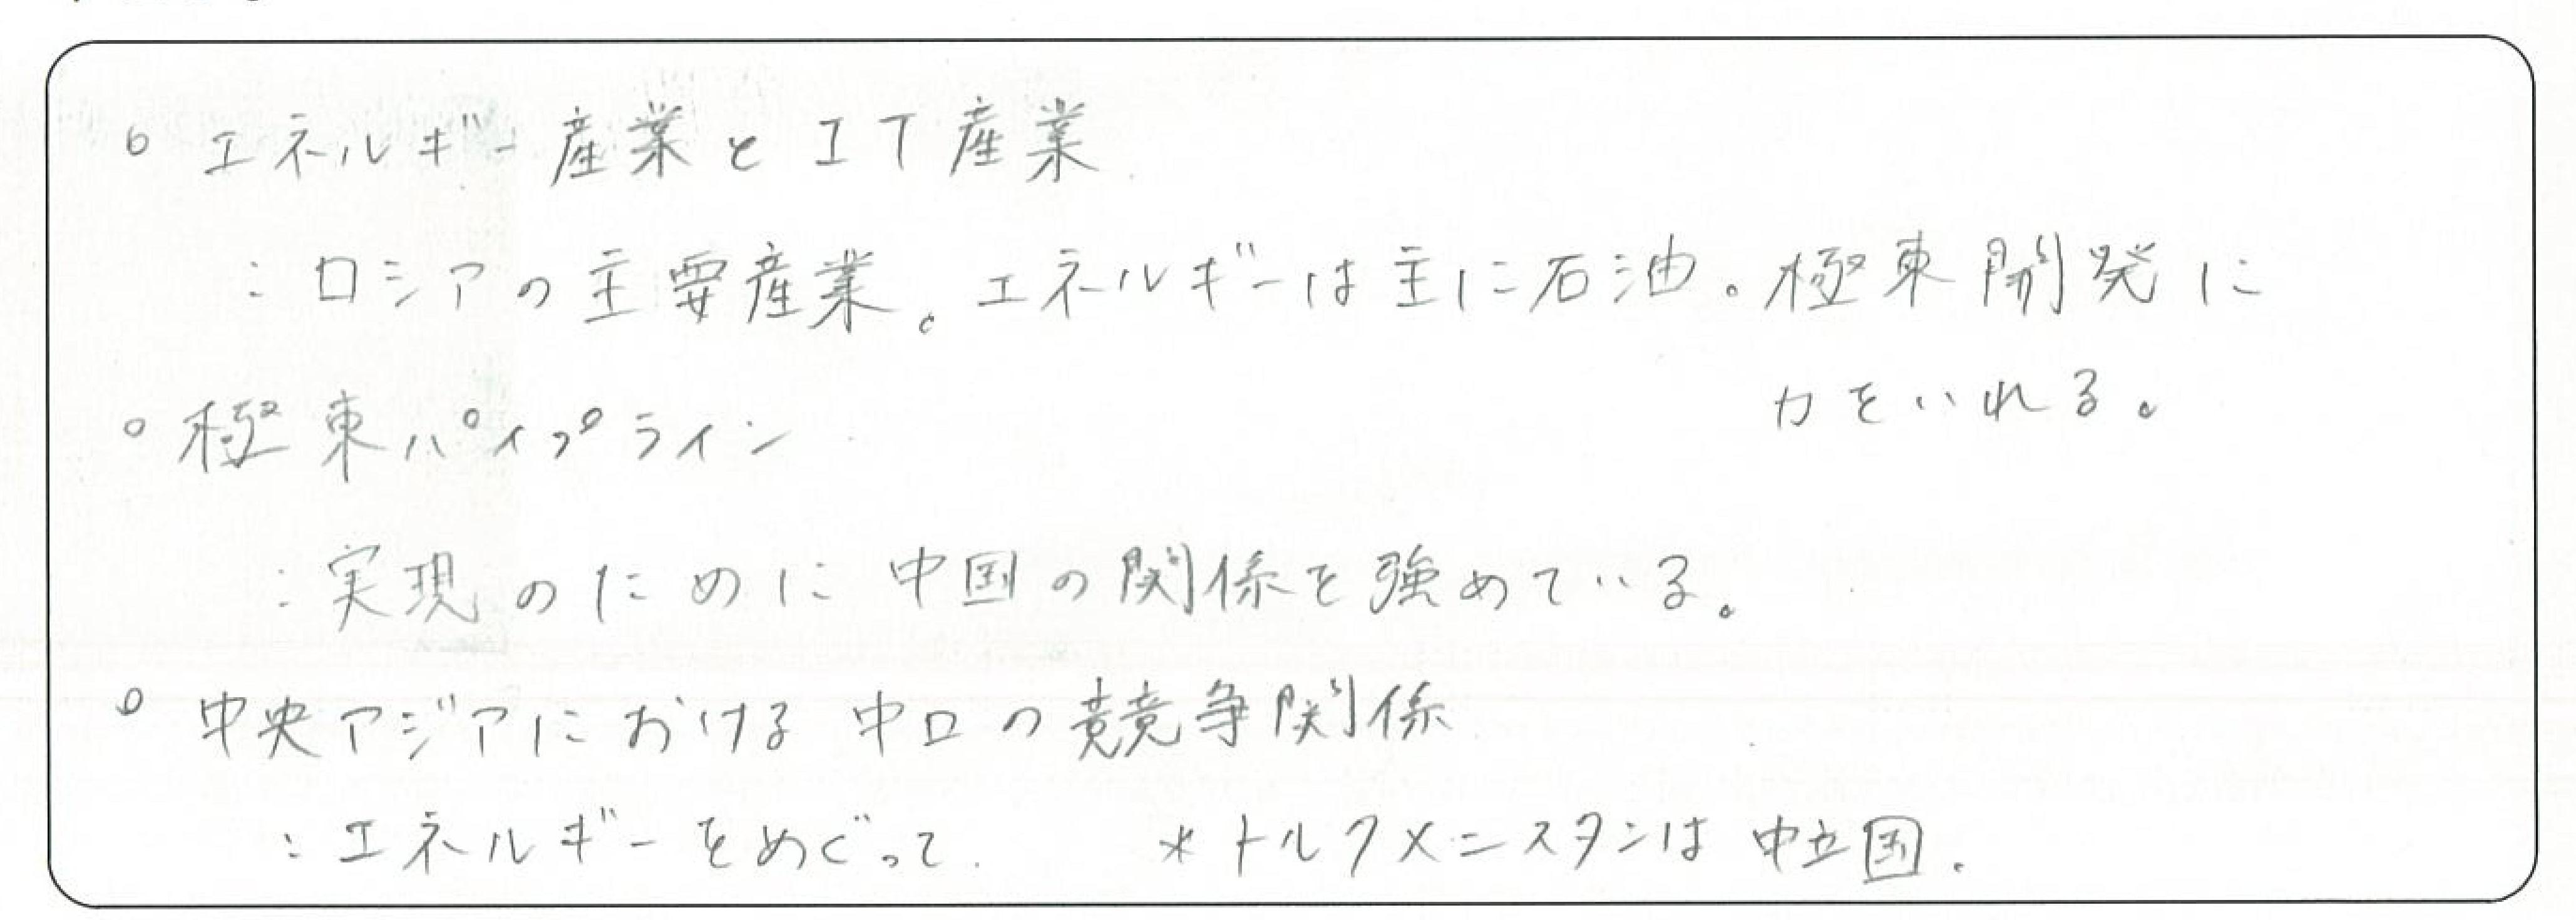 ○ エネルギー産業とIT産業
：ロシアの主要産業。エネルギーは主に石油。極東開発に
力をいれる。
○ 極東パイプライン
：実現のために中国の関係を強めている。
○ 中央アジアにおける中ロの競争関係
：エネルギーをめぐって. ＊トルクメニスタンは中立国.